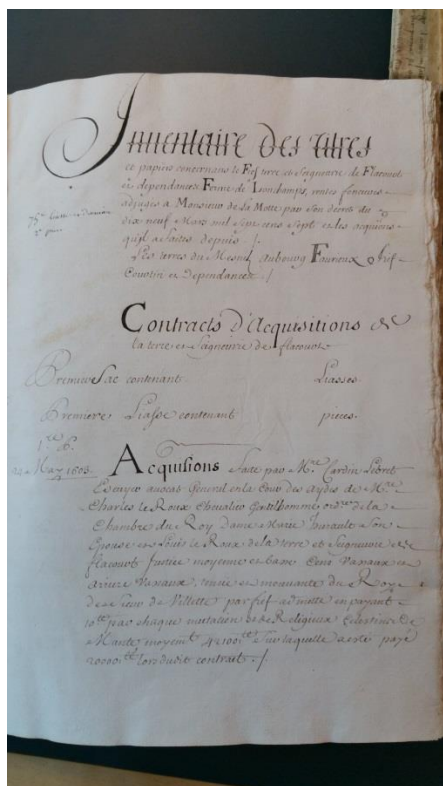 Inventaire Des titres
et papiers concernans le Fief terre et seigneurie de Flacourt
et dependances Ferme de Lonchamps, rentes foncieres
adjugés a Monsieur de la Motte par son decret du
dix neuf Mars mil sept cens sept et les acquisions
qu'il a faites depuis /.
Les terres du Mesnil aubourg Fourieux
et Dependances /
Contracts d'Acquisitions de
la terre et seigneurie de flacourt
Premier Sac contenant Liasses
Premiere Liasse contenant pieces
1.re
24 May 1603
Acquisions faite par M.re Cardin Lebret
Escuyer avocat General en la Cour des Aydes de M.re
Charles le Roux Chevalier Gentilhomme ord.re de la
Chambre du Roy Dame Marie son
Epouse et Louis le Roux de la terre et Seigneurie de
flacourt Justice moyenne et basse Cens Vassaux et
ariere Vassaux, tenüe et mouvante du Roy
de Sieur de Villette par fief en payant
10.tt par chaque mutation et de Religieux Celestins de
Mante moyen.t 42100.tt sur laquelle a esté payé
20000.tt lors dudit contract /.